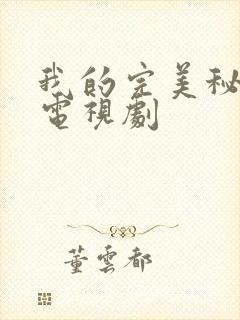 我的完美秘
電視劇
董雲都